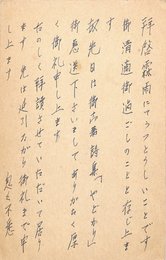 拝啓 霖雨にてうつとうしいことです
御清適御過ごしのことと存じ上ま
す 先日は御句集「やどかり」
御恵送下さいましてありがたく厚
く御礼申し上ます
たのしく拝読させていただいて居り
ます 先は延引ながら御礼まで申
し上ます